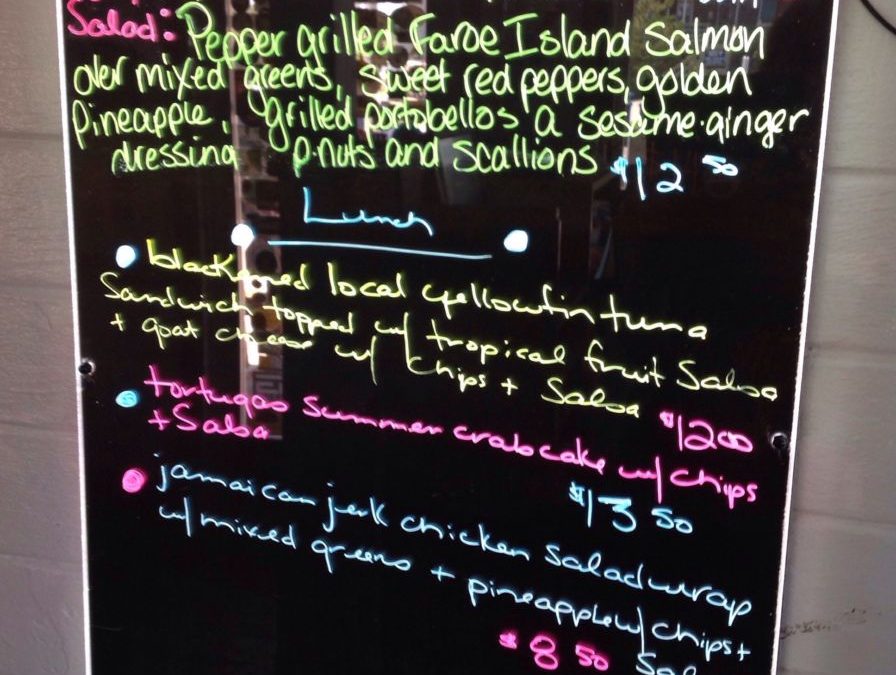 Salad: Pepper grilled Faroe Island Salmon
over mixed greens, sweet red peppers, golden
Pineapple, grilled portobellos a sesame-ginger
dressing p-nuts and scallions $12 50
Lunch
• blackened local yellowfin tuna
Sandwich topped w/ tropical fruit Salsa
+ goat cheese w/ chips + Salsa
$12 00
• tortugas Summer crabcake w/ chips
+ Salsa
$13 50
• jamaican jerk chicken Salad wrap
w/ mixed greens + pineapple w/ chips +
$8 50